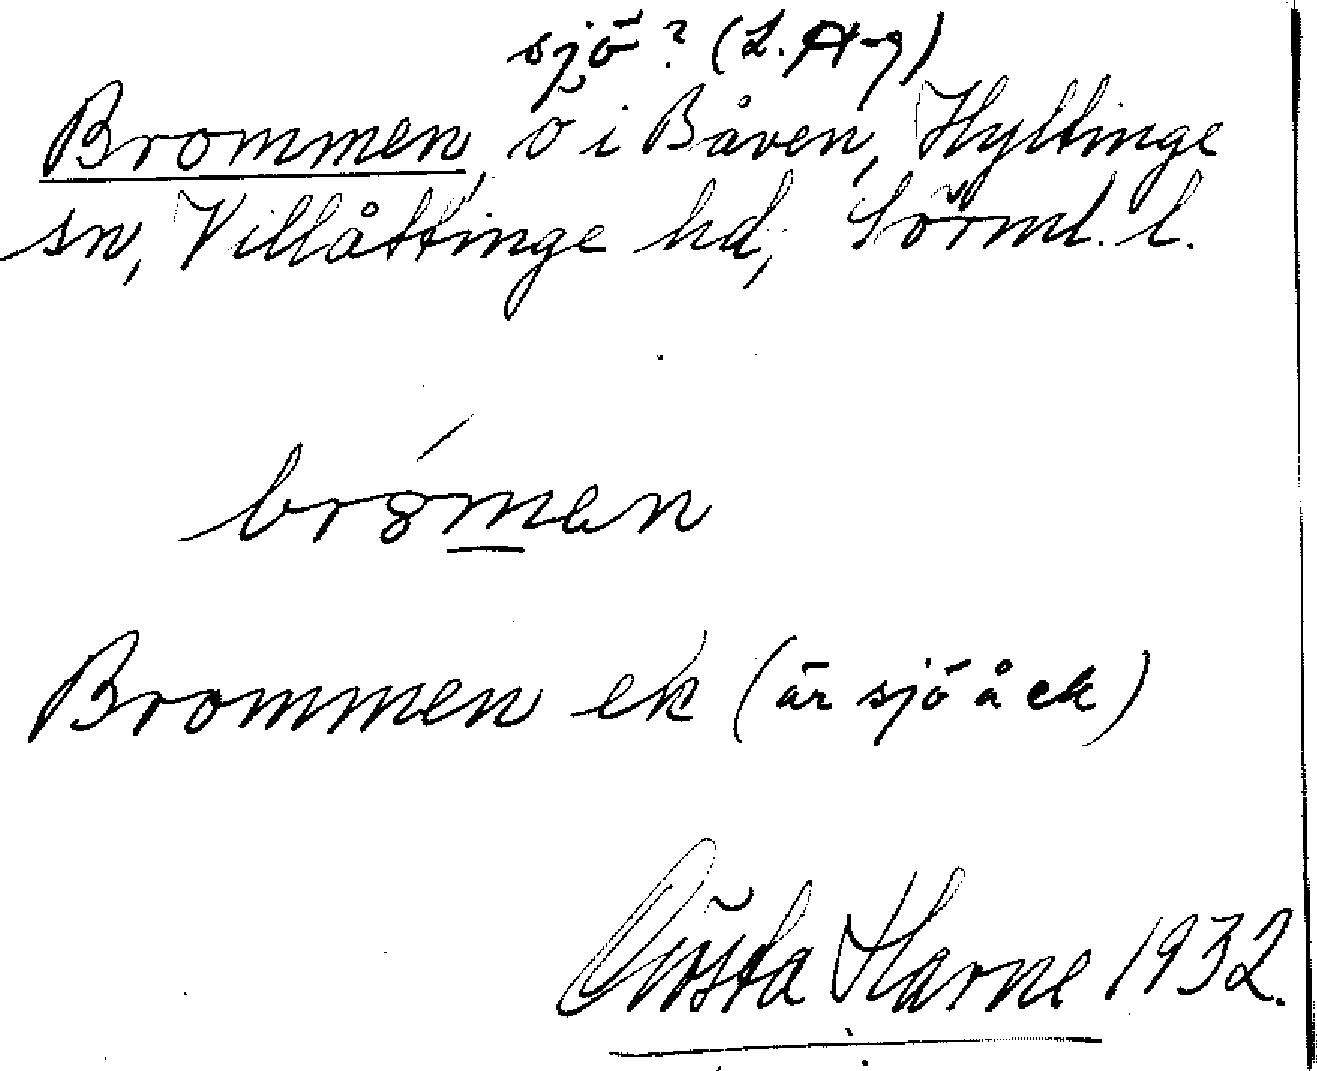 sjö? (L. H-g)
Brommen, ö i Båven, Hyltinge
sn, Villåttinge hd, Sörml. l.
bró̱men
Brommen ek (är sjö å ek)
Gösta Harne 1932.